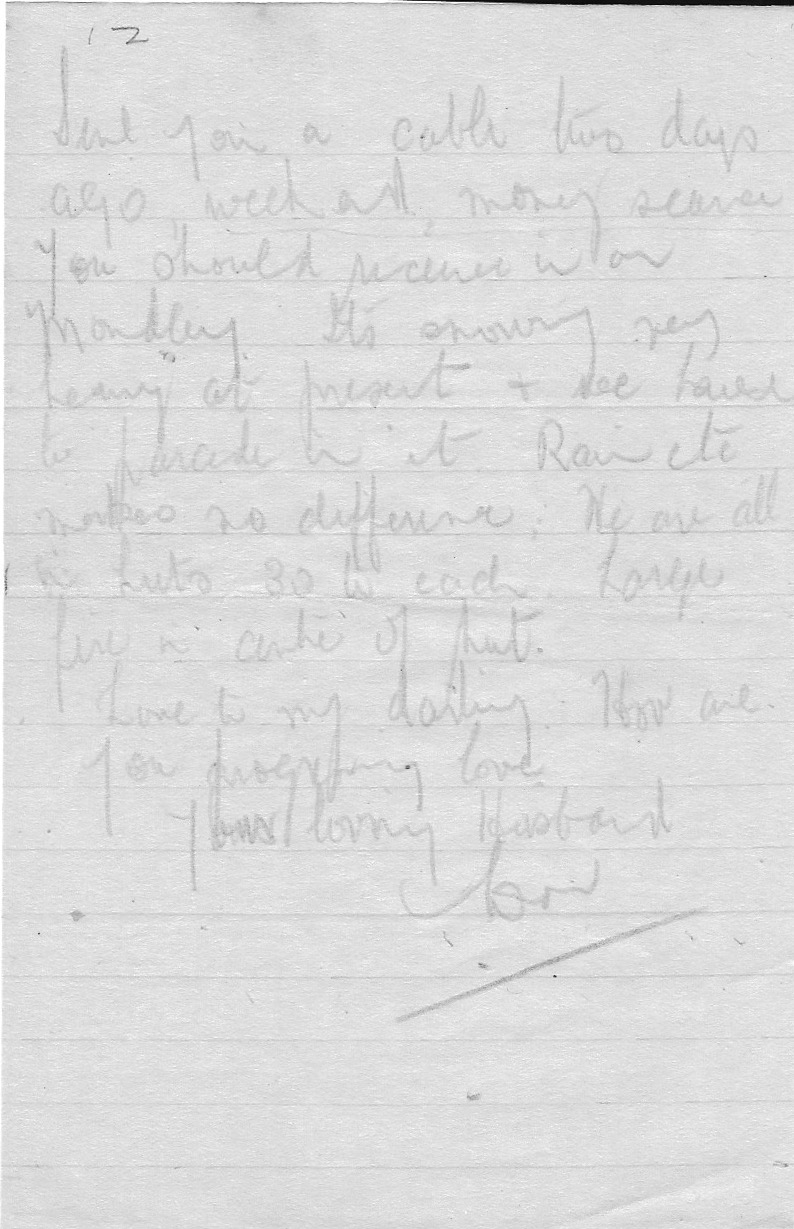 12
Sent you a cable two days
ago, week end, money scarce
You should receive it on
Monday. It's snowing very
heavy at present + we have
to parade in it. Rain etc
makes no difference. We are all
in huts 30 to each. Large
fire in centre of hut.
Love to my darling. How are
you progressing love
Your loving Husband